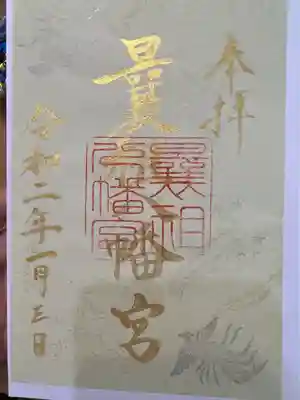 奉拝
曩祖八幡宮
曩祖
八幡宮
令和二年一月三日